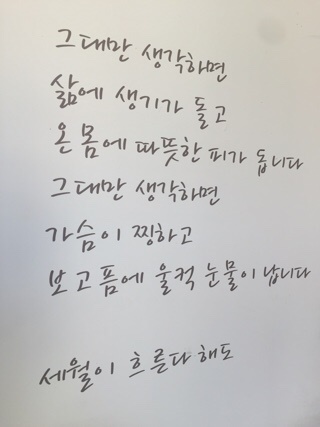 그대만 생각하면
삶에 생기가 돌고
온 몸에 따뜻한 피가 돕니다
그대만 생각하면
가슴이 찡하고
보고픔에 울컥 눈물이 납니다
세월이 흐른다 해도